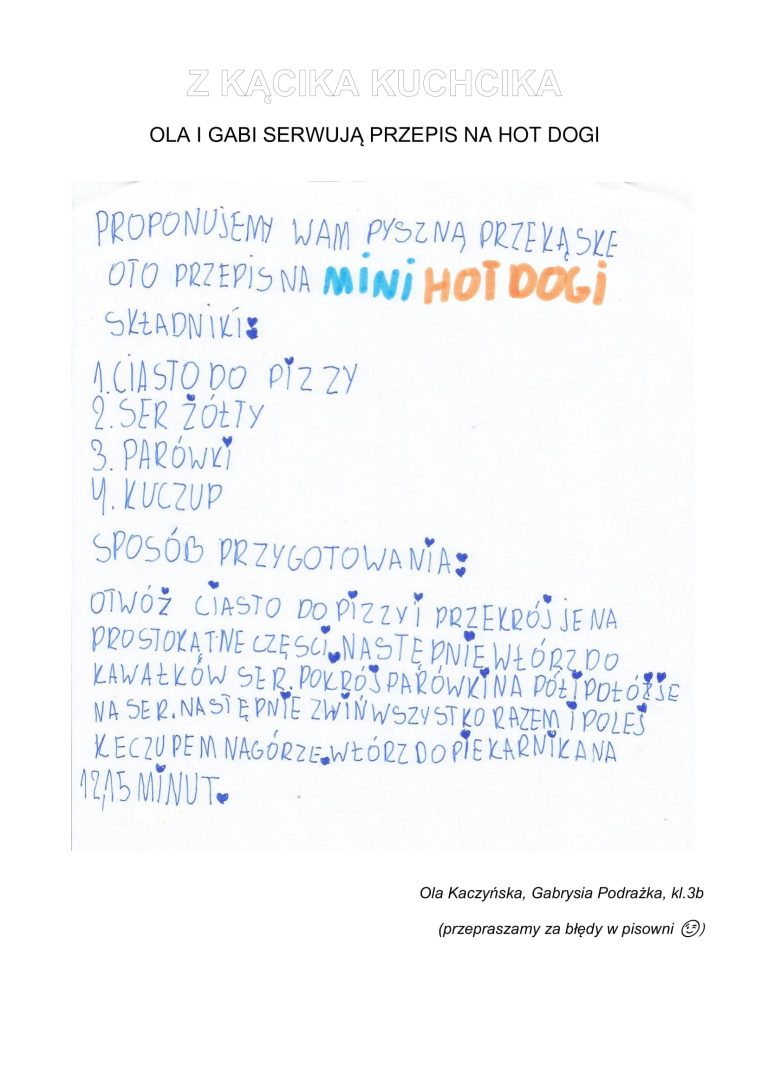 Z KĄCIKA KUCHCIKA
OLA I GABI SERWUJĄ PRZEPIS NA HOT DOGI
PROPONUJEMY WAM PYSZNĄ PRZEKĄSKE
OTO PRZEPIS NA MINI HOT DOGI
SKŁADNIKI:
1. CIASTO DO PIZZY
2. SER ŻÓŁTY
3. PARÓWKI
4. KUCZUP
SPOSÓB PRZYGOTOWANIA:
OTWÓŻ CIASTO DO PIZZY I PRZEKRÓJ JE NA
PROSTOKĄTNE CZĘSCI. NASTĘPNIE WŁÓRZ DO
KAWAŁKÓW SER. POKRÓJ PARÓWKI NA PÓŁ I POŁÓŻ JE
NA SER. NASTĘPNIE ZWIŃ WSZYSTKO RAZEM I POLEŚ
KECZUPEM NAGÓRZE. WŁÓRZ DO PIEKARNIKA NA
12,15 MINUT.
Ola Kaczyńska, Gabrysia Podrażka, kl.3b
(przepraszamy za błędy w pisowni 😉)